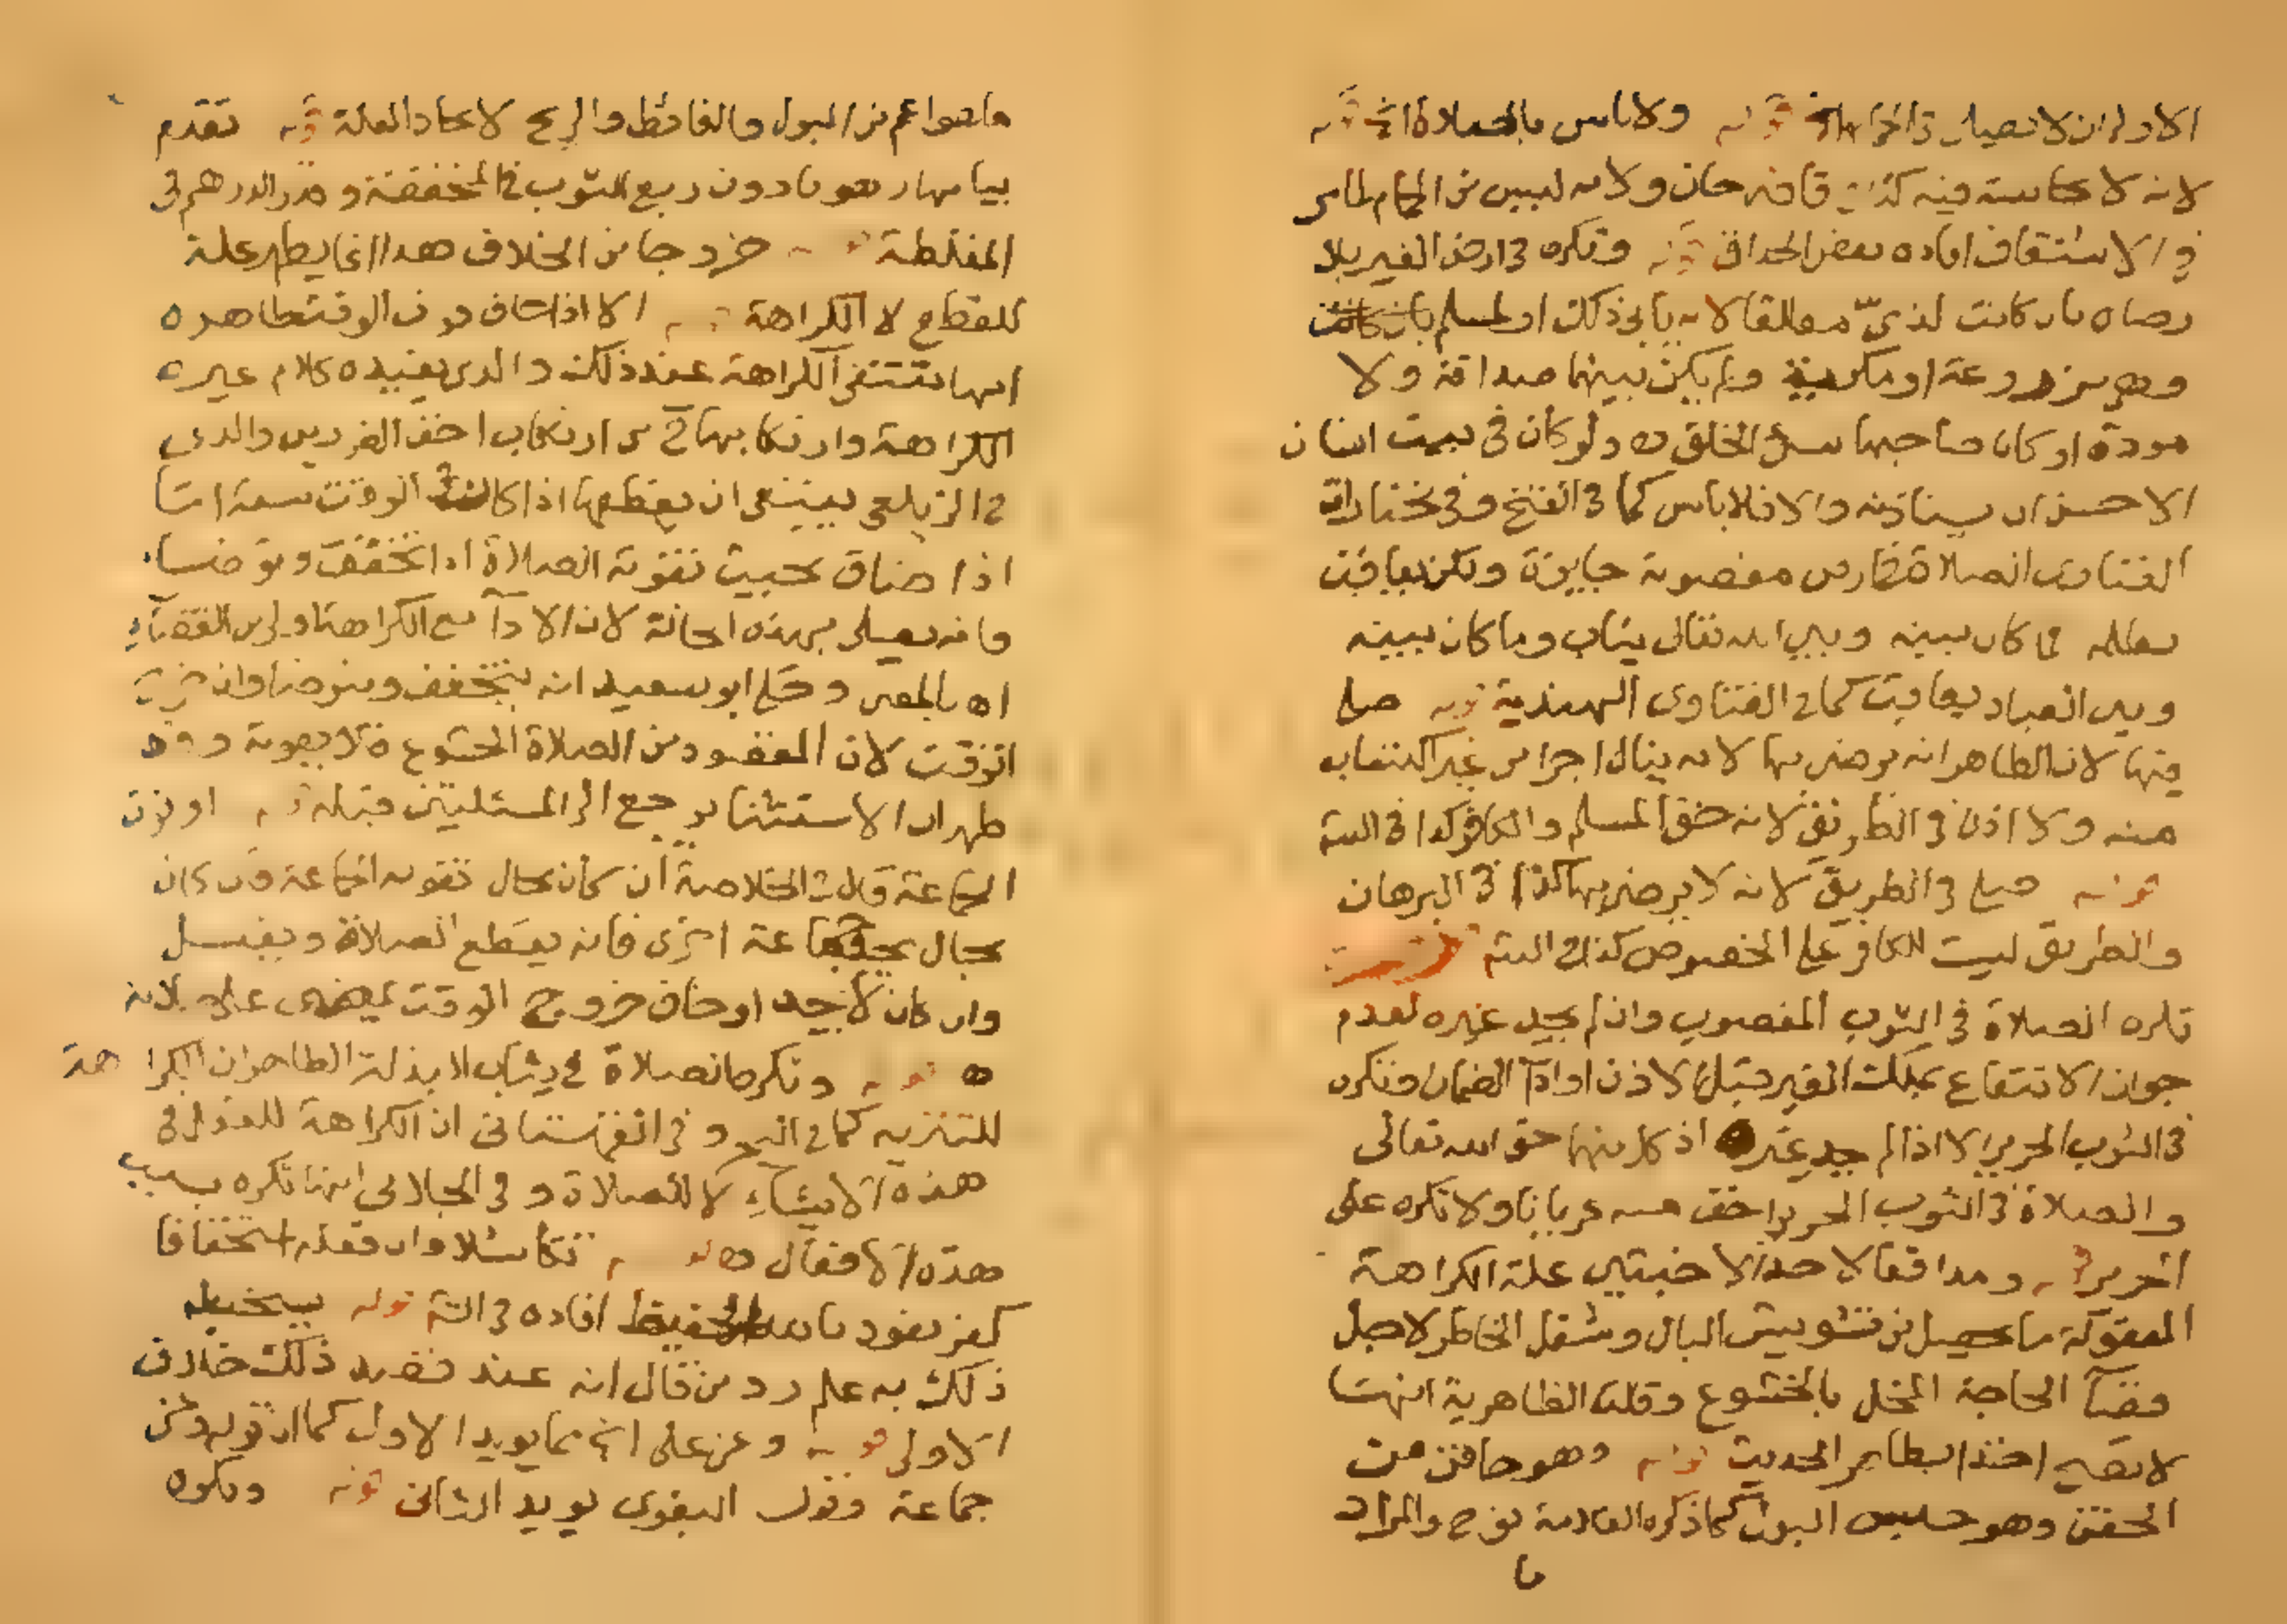 الاولى ان لا يصلى فى الحمام قوله ولا باس بالصلاة الخ قوله
لانه لا نجاسة فيه كذا فى قاضى خان ولانه ليس من الحمام لما مر
فى الاشتقاق افاده بعض الحذاق قوله وتكره فى ارض الغير بلا
رضاه بان كانت لذمىّ مطلقا لانه يابى ذلك او لمسلم بان كانت
وهى مزروعة او مكروبة ولم يكن بينهما صداقة ولا
مودة او كان صاحبها سىء الخلق ه ولو كان فى بيت انسان
الاحسن ان يستاذنه والا فلا باس كما فى الفتح وفى مختارات
الفتاوى الصلاة فى ارض مغصوبة جايزة ولكن يعاقب
بظلمه فما كان بينه وبين الله تعالى يثاب وما كان بينه
وبين العباد يعاقب كما فى الفتاوى الهندية قوله صلى
فيها لان الظاهر انه يرضى بها لانه ينال اجرا من غير اكتسابه
منه ولا اذن فى الطريق لانه حق المسلم والكافر كذا فى التتمة
قوله صلى فى الطريق لانه لا يرضى بها كذا فى البرهان
والطريق ليست للكافر على الخصوص كذا فى التتمة
تكره الصلاة فى الثوب المغصوب وان لم يجد غيره لعدم
جواز الانتفاع بملك الغير قبل الاذن او اداء الضمان وتكره
فى الثوب الحرير الا اذا لم يجد غيره اذ كل منهما حق الله تعالى
والصلاة فى الثوب الحرير اخف منه عريانا ولا تكره على
الحرير قوله ومدافعا لاحد الاخبثين علة الكراهة
المعقولة ما يحصل من تشويش البال وشغل الخاطر لاجل
قضاء الحاجة المخل بالخشوع وقالت الظاهرية انها
لا تصح اخذا بظاهر الحديث قوله وهو حاقن من
الحقن وهو حبس البول كما ذكره العلامة نوح والمراد
ما
ما هو اعم من البول والغائط والريح لاتحاد العلة قوله تقدم
بيانها وهو ما دون ربع الثوب فى المخففة وقدر الدرهم فى
المغلظة قوله خروجا من الخلاف هذا انما يظهر علة
للقطع لا الكراهة قوله الا اذا خاف فوت الوقت ظاهره
انها تنتفى الكراهة عند ذلك والذى يفيده كلام غيره
الكراهة وارتكابها ح من ارتكاب اخف الضررين والذى
فى الزيلعى ينبغى ان يقطعها اذا كان فى الوقت سعة اما
اذا ضاق بحيث تفوته الصلاة اذا تخفف وتوضا
فانه يصلى بهذه الحالة لان الاداء مع الكراهة اولى من القضاء
اه بالمعنى وحكى ابو سعيد انه يتخفف ويتوضا وان خرج
الوقت لان المقصود من الصلاة الخشوع فلا يفوته وقد
ظهر ان الاستثنا يرجع الى المسئلتين قبله قوله او فوت
الجماعة قال فى الخلاصة ان كان بحال تفوته الجماعة فان كان
بحال يجد جماعة اخرى فانه يقطع الصلاة ويغسل
وان كان لا يجد او خاف خروج الوقت يمضى على صلاته
ه قوله وتكره الصلاة فى ثياب البذلة الظاهر ان الكراهة
للتنزيه كما فى البحر وفى القهستانى ان الكراهة للعدول فى
هذه الاشياء لا للصلاة وفى الجلابى انها تكره بسبب
هذه الافعال ه قوله تكاسلا وان فعله استخفافا
كفر نعوذ بالله الحفيظ افاده فى التتمة قوله بيخيله
ذلك به علم رد من قال انه عند قصد ذلك خلاف
الاولى قوله وعن على انه مما يويد الاول كما ان قوله وعن
جماعة وقول البغوى يويد الثانى قوله وتكره